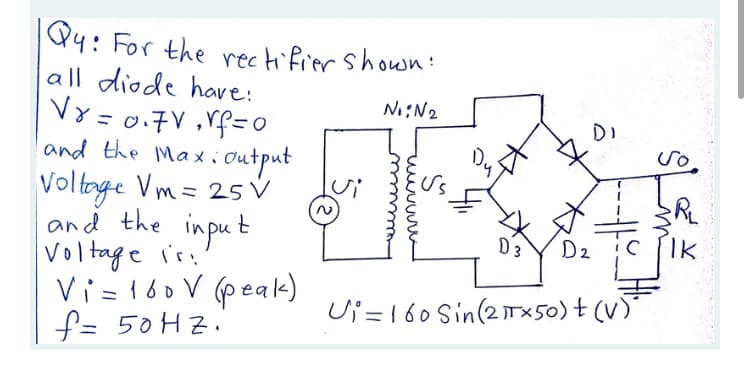 Q4: For the rectifier shown:
all diode have:
Vγ = 0.7V , rf=0
and the Max: output
Voltage Vm = 25V
and the input
Voltage is:
Vi = 160V (peak)
f= 50HZ.
N1:N2
Vi
Vs
D4
D1
D3
D2
C
Vo
RL
1K
Vi = 160 Sin(2π×50)t (V)